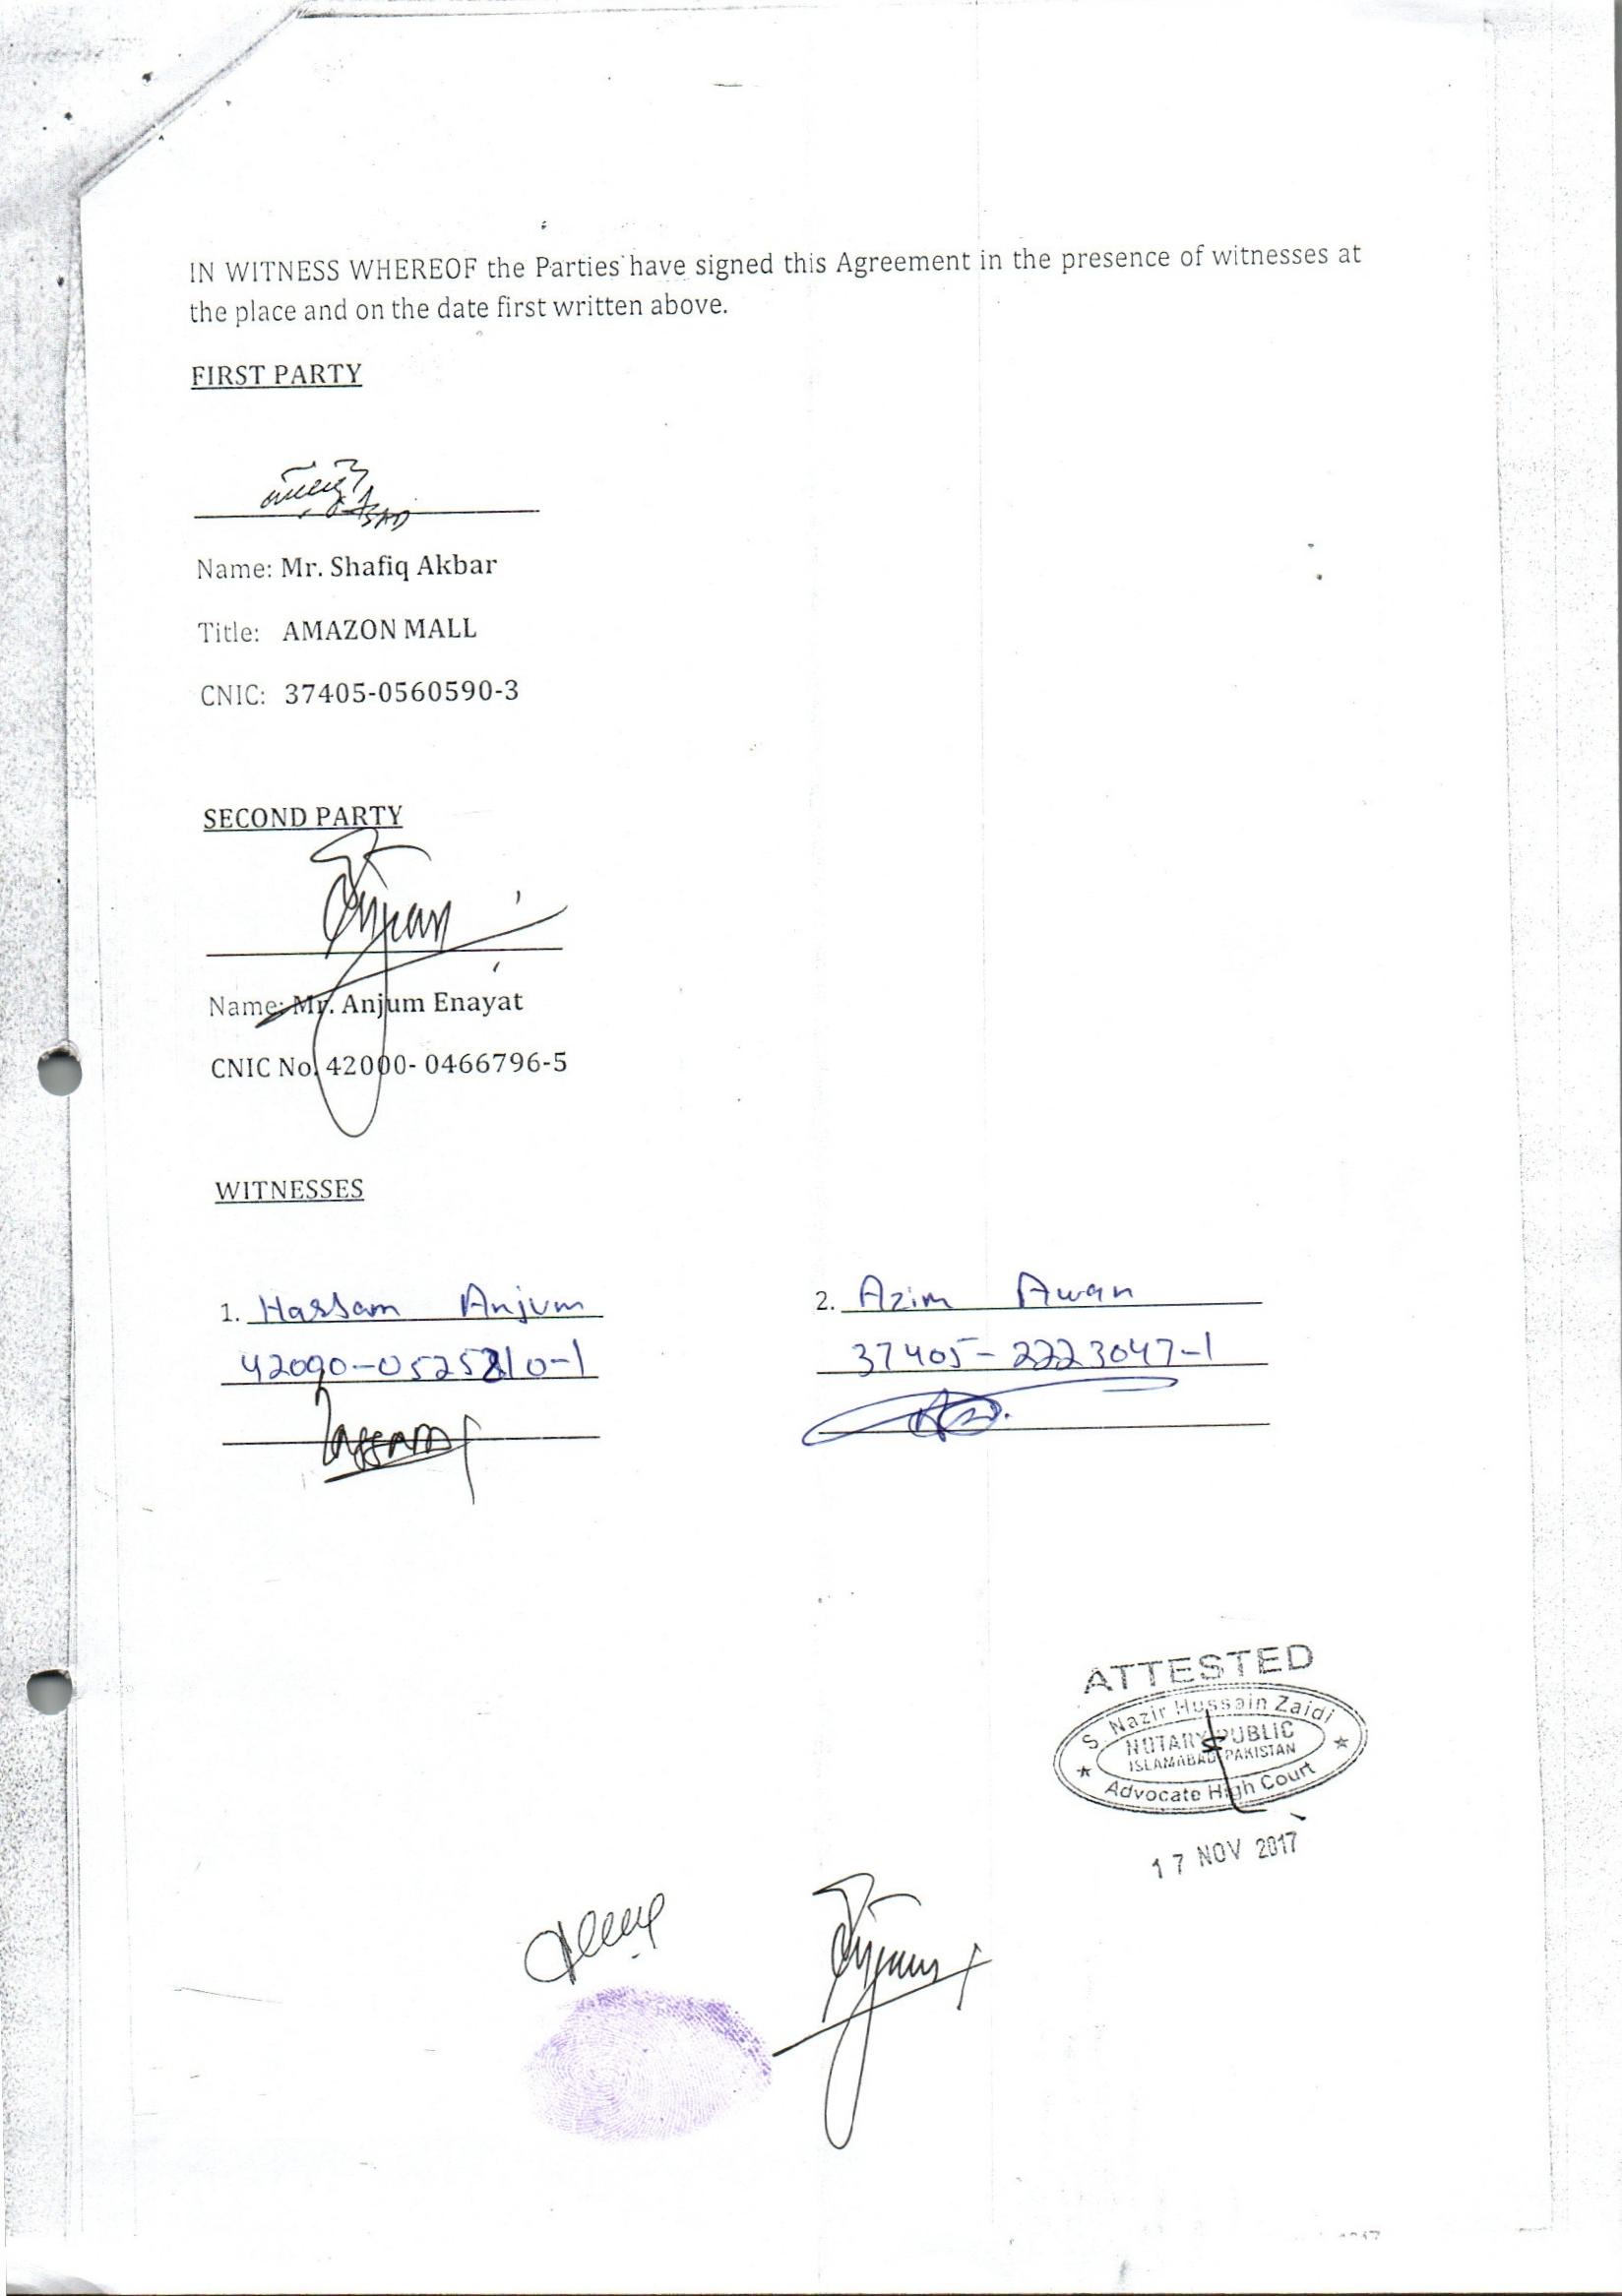 IN WITNESS WHEREOF the Parties have signed this Agreement in the presence of witnesses at
the place and on the date first written above.
FIRST PARTY
Name: Mr. Shafiq Akbar
Title: AMAZON MALL
CNIC: 37405-0560590-3
SECOND PARTY
Anjum
Name: Mr. Anjum Enayat
CNIC No. 42000- 0466796-5
WITNESSES
1. Hassam Anjum
2. Azim Awan
37405-2223047-1
ATTESTED
S. Nazir Hussain Zaidi
NOTARY PUBLIC
ISLAMABAD PAKISTAN
Advocate High Court
17 NOV 2017
Anjum